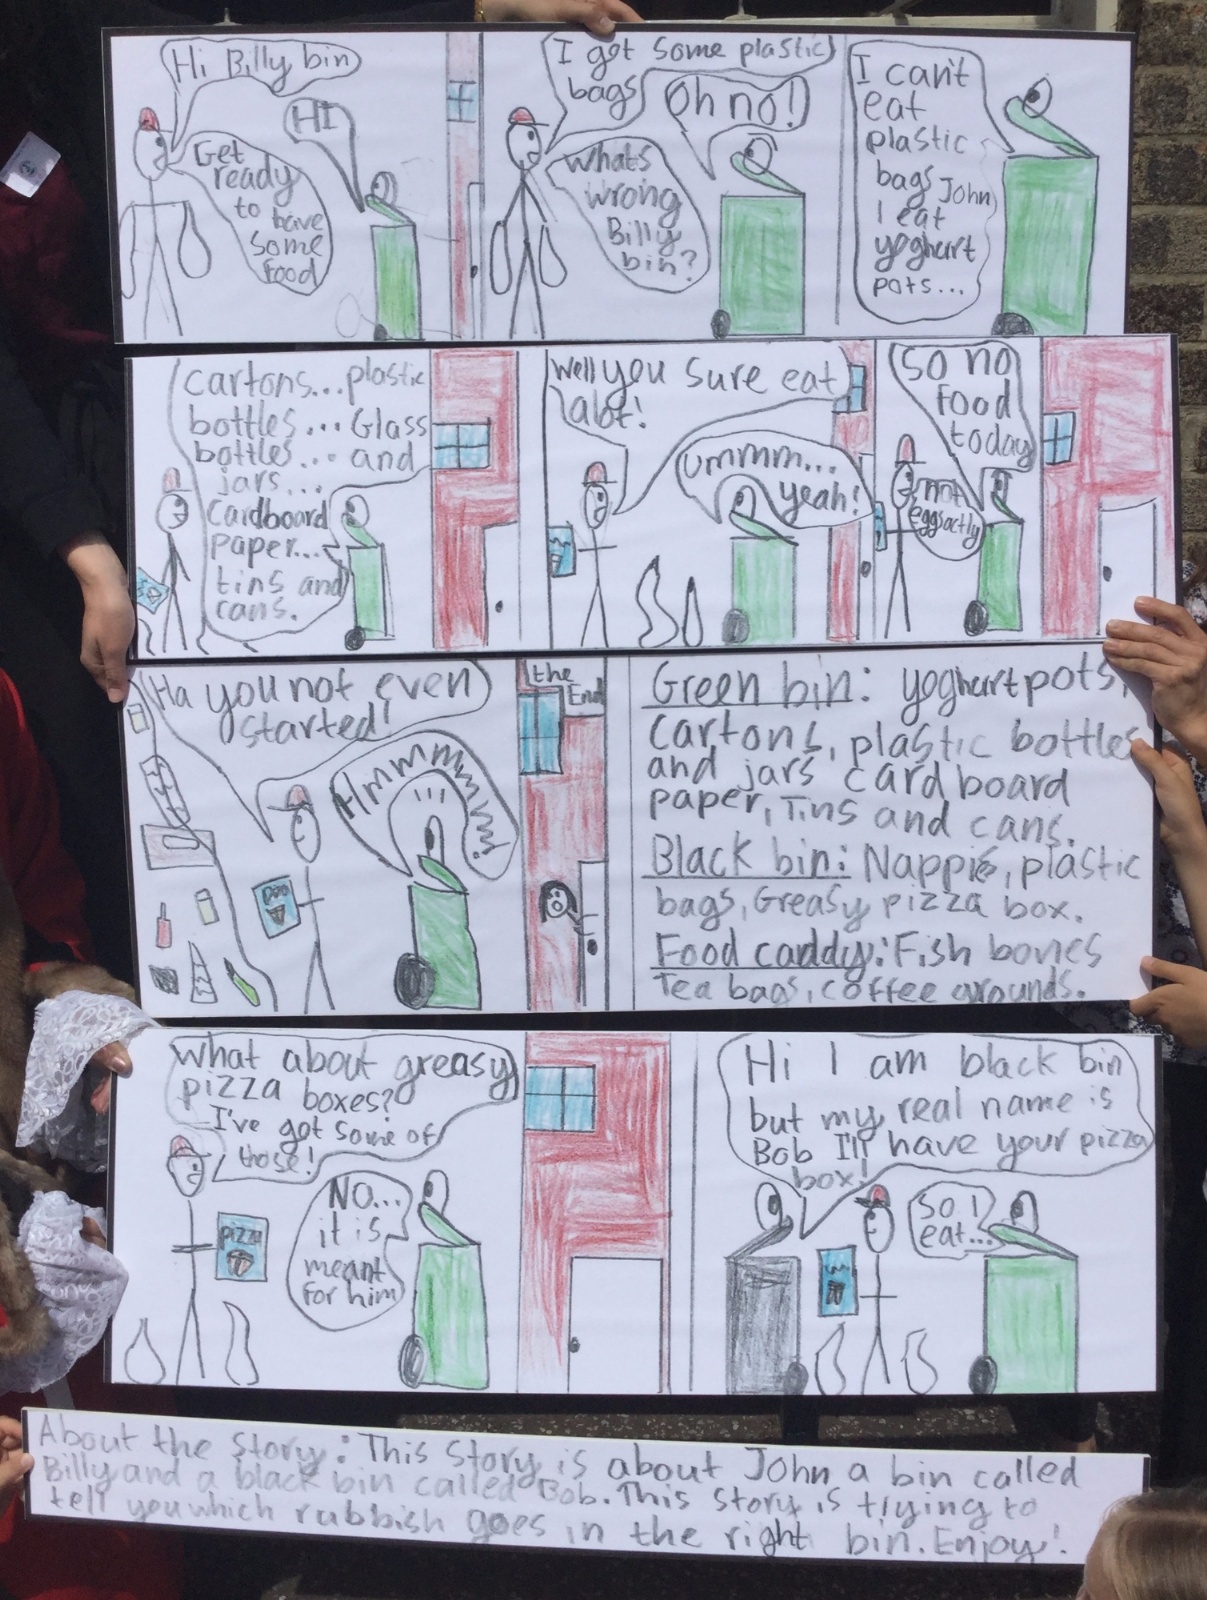 Hi Billy bin
HI
Get
ready
to have
some
food
I got some plastic
bags
Oh no!
Whats
wrong
Billy
bin?
I can't
eat
plastic
bags John
I eat
yoghurt
pots...
Cartons... plastic
bottles... Glass
bottles... and
jars...
Cardboard
paper...
tins and
cans.
Well you sure eat
alot!
ummm...
yeah!
So no
food
today
not
eggsactly
Ha you not even
started!
Hmmmmmm!
the
End
Green bin: yoghurt pots,
Cartons, plastic bottles
and jars cardboard
paper, Tins and cans.
Black bin: Nappie, plastic
bags, Greasy pizza box.
Food caddy: Fish bones
Tea bags, coffee grounds.
What about greasy
pizza boxes?
I've got some of
those!
pizza
No...
it is
meant
for him
Hi I am black bin
but my real name is
Bob I'll have your pizza
box!
So I
eat...
About the Story: This Story is about John a bin called
Billy and a black bin called Bob. This story is trying to
tell you which rubbish goes in the right bin. Enjoy!